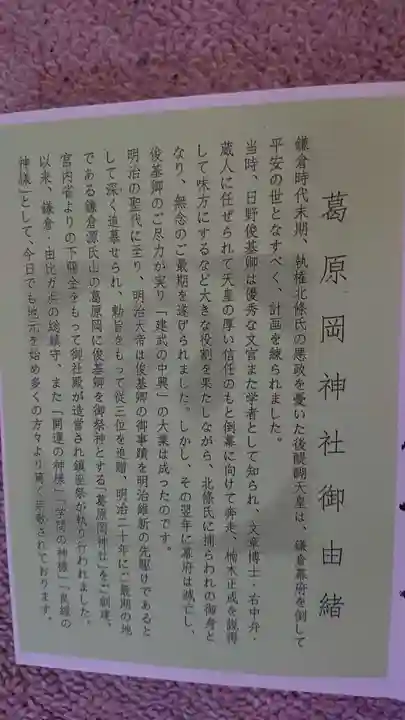 葛原岡神社御由緒
鎌倉時代末期、執権北條氏の悪政を憂いた後醍醐天皇は、鎌倉幕府を倒して
平安の世となすべく、計画を練られました。
当時、日野俊基卿は優秀な文官また学者として知られ、文章博士・右中弁・
蔵人に任ぜられて天皇の厚い信任のもと倒幕に向けて奔走、楠木正成を説得
して味方にするなど大きな役割を果たしながら、北條氏に捕らわれの御身と
なり、無念のご最期を遂げられました。しかし、その翌年に幕府は滅亡し、
俊基卿のご尽力が実り「建武の中興」の大業は成ったのです。
明治の聖代に至り、明治大帝は俊基卿の御事蹟を明治維新の先駆けであると
して深く追慕せられ、勅旨をもって従三位を追贈、明治二十年にご最期の地
である鎌倉源氏山の葛原岡に俊基卿を御祭神とする「葛原岡神社」をご創建、
宮内省よりの下賜金をもって御社殿が造営され鎮座祭が執り行われました。
以来、鎌倉・由比ガ浜の総鎮守、また「開運の神様」「学問の神様」「良縁の
神様」として、今日でも地元を始め多くの方々より篤く崇敬されております。